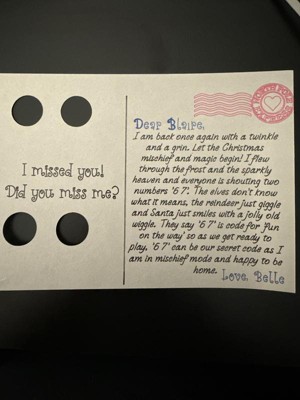 I missed you!
Did you miss me?
Dear Blaire,
I am back once again with a twinkle
and a grin. Let the Christmas
mischief and magic begin! I flew
through the frost and the sparkly
heaven and everyone is shouting two
numbers '6 7'. The elves don't know
what it means, the reindeer just giggle
and Santa just smiles with a jolly old
wiggle. They say '6 7' is code for 'fun
on the way' so as we get ready to
play, '6 7' can be our secret code as I
am in mischief mode and happy to be
home.
Love, Belle